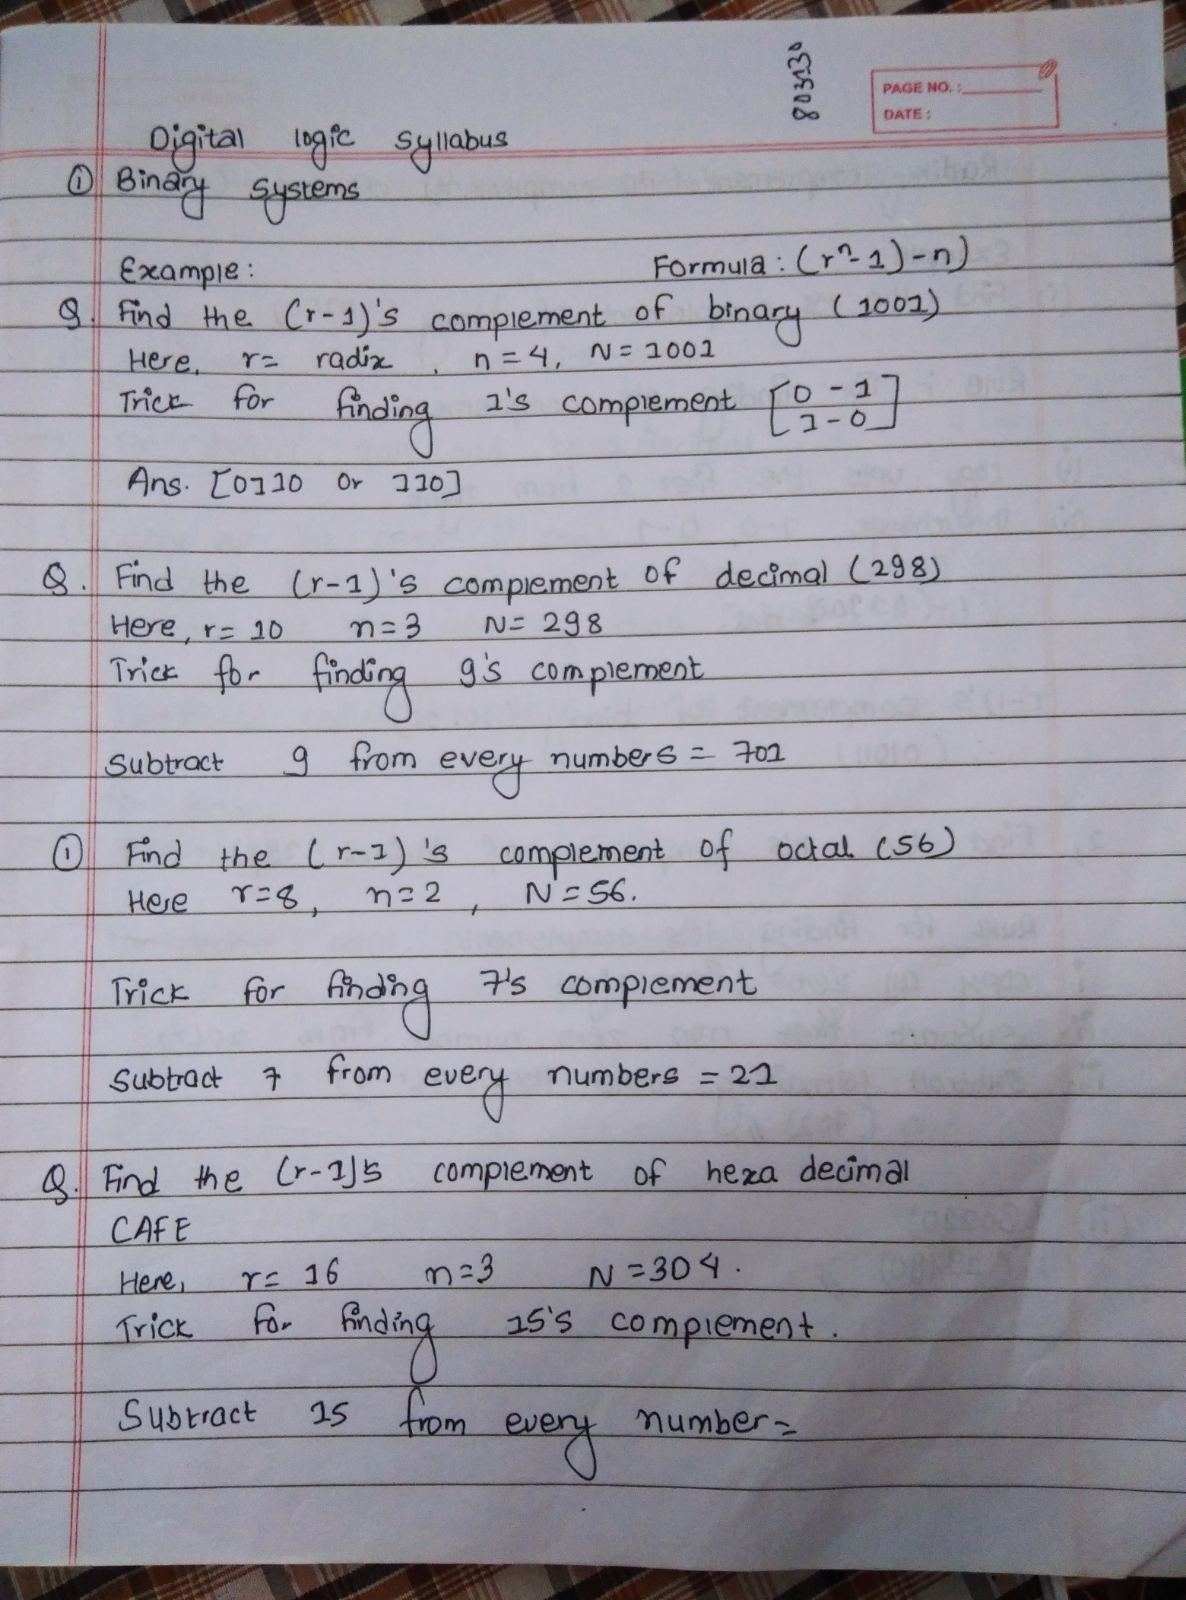 803130
PAGE NO.:
DATE:
Digital logic syllabus
① Binary systems
Example: Formula: (rⁿ-1)-n)
Q. Find the (r-1)'s complement of binary (1001)
Here, r= radix, n=4, N=1001
Trick for finding 1's complement [0-1
1-0]
Ans. [0110 or 110]
Q. Find the (r-1)'s complement of decimal (298)
Here, r= 10 n=3 N= 298
Trick for finding 9's complement
Subtract 9 from every numbers = 701
① Find the (r-1)'s complement of octal (56)
Here r=8, n=2, N=56.
Trick for finding 7's complement
Subtract 7 from every numbers = 21
Q. Find the (r-1)'s complement of hexa decimal
CAFE
Here, r= 16 n=3 N=304.
Trick for finding 15's complement.
Subtract 15 from every number=